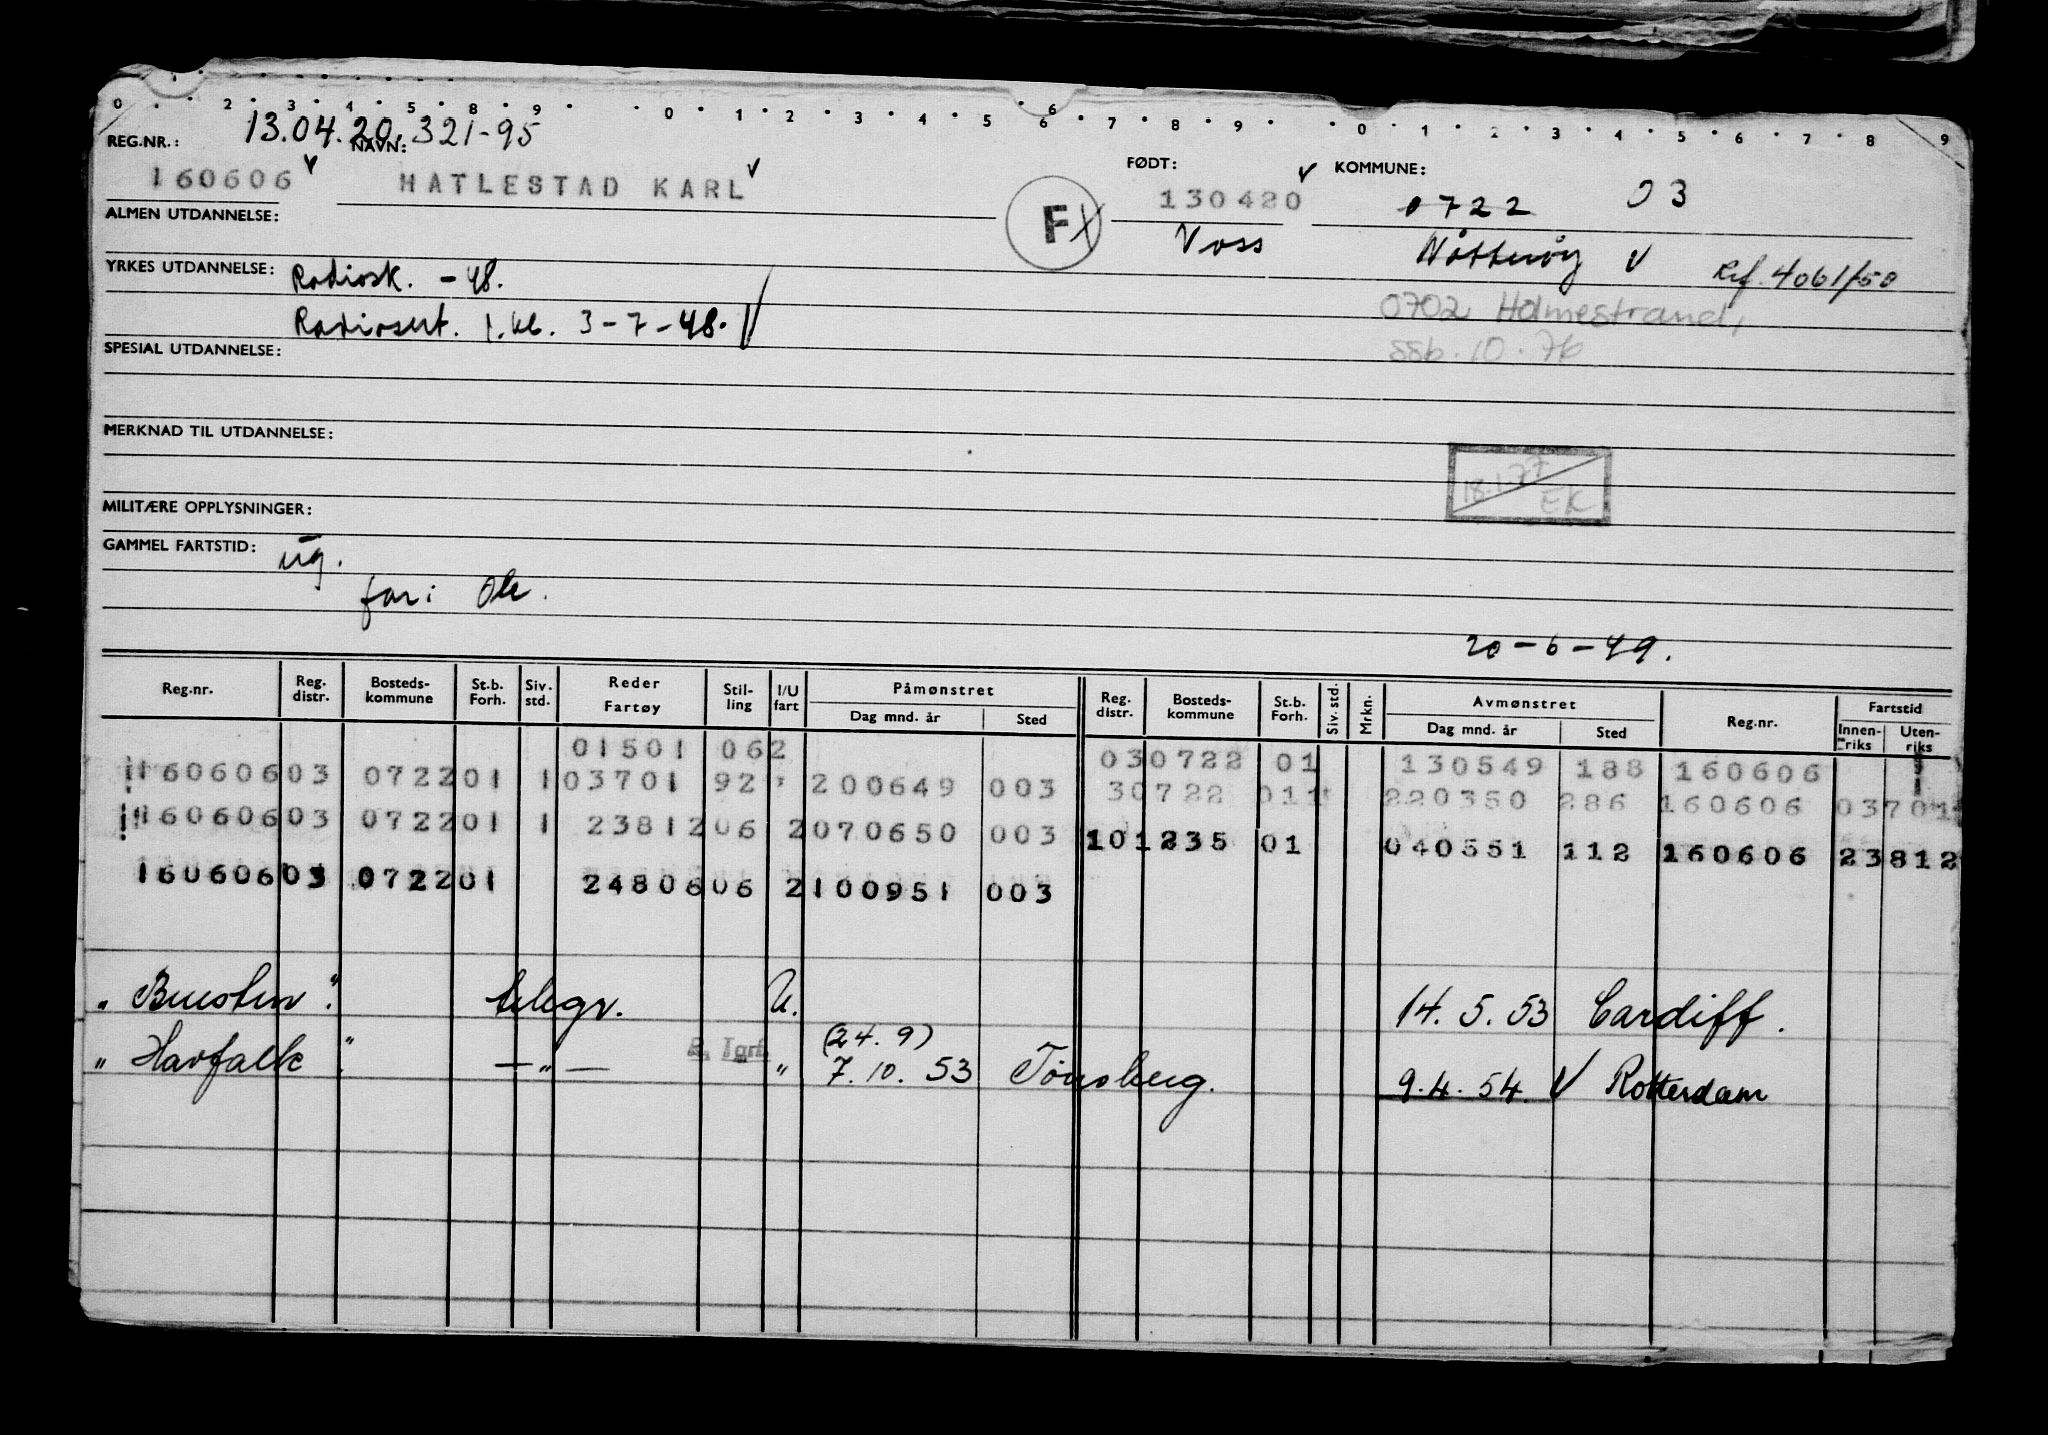 0 2 3 4 5 8 9 0 1 2 3 4 5 6 6 7 8 9 0 1 2 3 4 5 6 7 8 9
REG.NR.: 13.04.20. NAVN: 321-95 FØDT: KOMMUNE:
160606 HATLESTAD KARL F 130420 0722 03
ALMEN UTDANNELSE: Voss Nøtterøy
YRKES UTDANNELSE: Radiosk. - 48. Ref. 4061/50
Radiosert. 1. kl. 3-7-48. 0702 Holmestrand,
SPESIAL UTDANNELSE: ssb. 10. 76
MERKNAD TIL UTDANNELSE:
18.1.77 EK
MILITÆRE OPPLYSNINGER:
GAMMEL FARTSTID: ug.
far: Ole.
20-6-49.
Reg.nr. Reg. distr. Bosteds-kommune St.b. Forh. Siv. std. Reder Fartøy Stil-ling I/U fart Påmønstret Dag mnd. år Sted Reg. distr. Bosteds-kommune St.b. Forh. Siv. std. Mrkn. Avmønstret Dag mnd. år Sted Reg.nr. Fartstid Innen-riks Uten-riks
01501 062 030722 01 130549 188 160606
160606 03 0722 01 1 03701 92 200649 003 30722 011 220350 286 160606 03701
160606 03 0722 01 1 23812 06 2 070650 003 101235 01 040551 112 160606 23812
160606 03 0722 01 24806 06 2 100951 003
" Buesten " telegr. U. 14. 5. 53 Cardiff.
(24. 9)
" Havfalk " — " — R. Tgrf. " 7. 10. 53 Tönsberg. 9. 4. 54. V Rotterdam